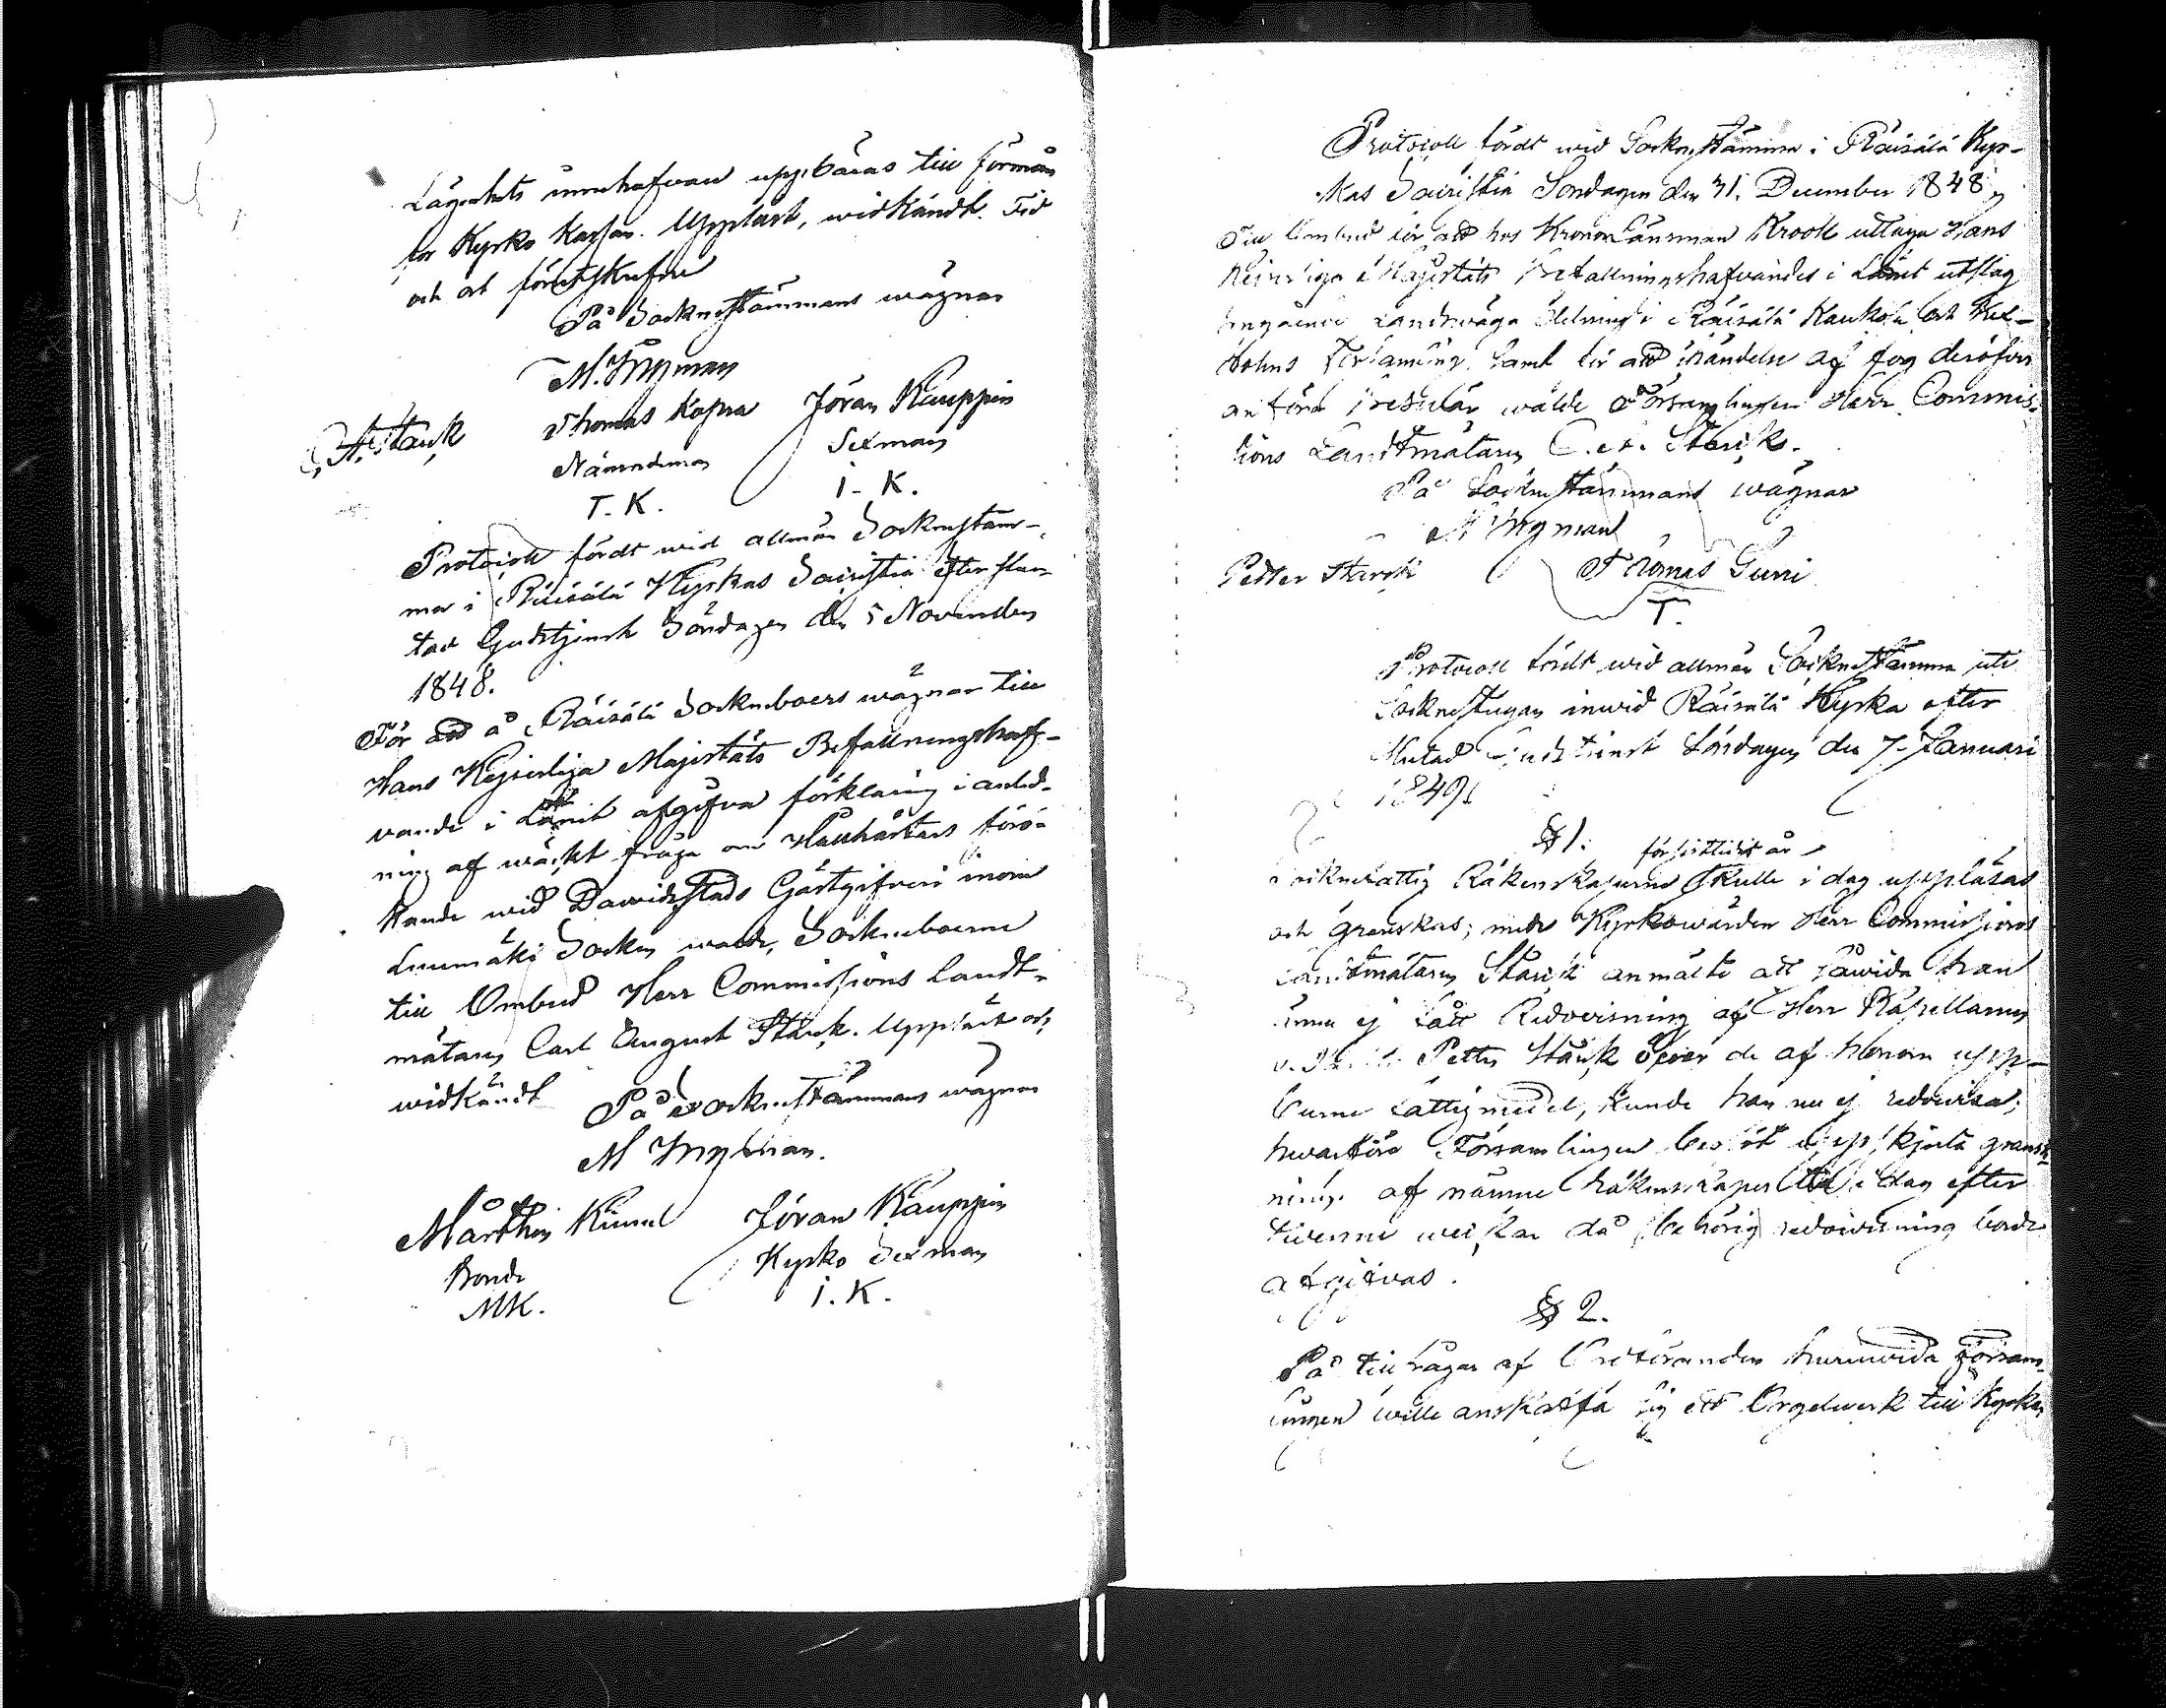 Lägenhets innehafvare uppbäras till förmån
för Kyrko Kassan. Uppläst, widkändt. Tid
och ort förutskrefne
På Sockne Stämmans wägnar
M. Ingman
C. A. Starck Thomas Kopra Jöran Kauppin
Nämndeman Sexman
T. K. I. K.
Protocoll fördt wid allmän Sockne Stäm-
ma i Räisälä Kyrkas Sacristia efter slu-
tad Gudstjenst Söndagen den 5 November
1848.
För att å Räisälä Sockneboers wägnar till
Hans Kejserliga Majestäts Befallningshaf-
vande i Länet afgifva förklaring i anled-
ning af wäckt fråga om Hållhästars
wid Dawidstads Gästgifveri inom
Luumäki Socken walde Sockneboerne
till Ombud Herr Commissions Landt-
mätaren Carl August Starck. Uppläst och
widkändt
På Sockne Stämmans wägnar
M Ingman.
Marthin Jöran Kauppin
Bonde Kyrko Sexman
MK. I. K.
Protocoll fördt wid Sockne Stämma i Räisälä Kyr-
kas Sacristia Söndagen den 31. December 1848
Till Ombud för att hos Kronolänsman Krook uttaga Hans
Kejserliga Majestäts Befallningshafvandes i Länet utslag
angående Landtwäga delning i Räisälä Kaukola och Kex-
holms Församling, samt för att i händelse af fog deröfver
anföra besvär, walde Församlingen Herr Commis-
sions Landtmätaren C. A. Starck.
På Sockne Stämmans wägnar
M Ingman
Petter Starck Thomas
T.
Protocoll fördt wid allmän Sockne Stämma uti
Sockne Stugan inwid Räisälä Kyrka efter
slutad Gudstjenst Söndagen den 7. Januari
1849.
§ 1.
för sistlidit år
Räkenskaperne skulle i dag uppläsas
och granskas; men Kyrkowärden Herr Commissions
Landtmätaren Starck anmälte att såwida han
ännu ej fått Redovisning af Herr Kapellanen
Petter Starck öfver de af honom upp-
burne fattigmedel, kunde han nu ej redovisa;
hwarföre Församlingen beslöt uppskjuta gransk-
ning af nämne Räkenskaper till i dag efter
twenne weckor då behörig redovisning borde
afgifvas.
§ 2.
På tillfrågan af Ordföranden huruwida Försam-
lingen wille anskaffa sig ett Orgelwerk till Kyrkan